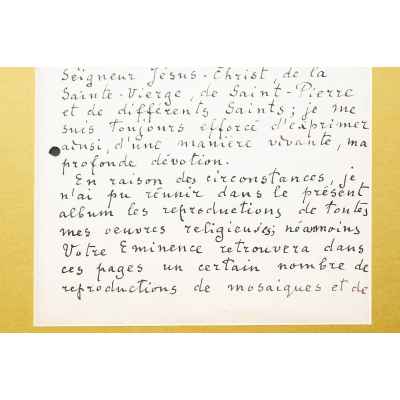 Seigneur Jésus-Christ, de la
Sainte-Vierge, de Saint-Pierre
et de différents Saints; je me
suis toujours efforcé d'exprimer
ainsi, d'une manière vivante, ma
profonde dévotion.
En raison des circonstances, je
n'ai pu réunir dans le présent
album les reproductions de toutes
mes oeuvres religieuses; néanmoins
Votre Eminence retrouvera dans
ces pages un certain nombre de
reproductions de mosaïques et de